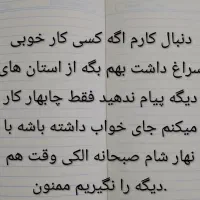 دنبال کارم اگه کسی کار خوبی
سراغ داشت بهم بگه از استان های
دیگه پیام ندهید فقط چابهار کار
میکنم جای خواب داشته باشه با
نهار شام صبحانه الکی وقت هم
دیگه را نگیریم ممنون.